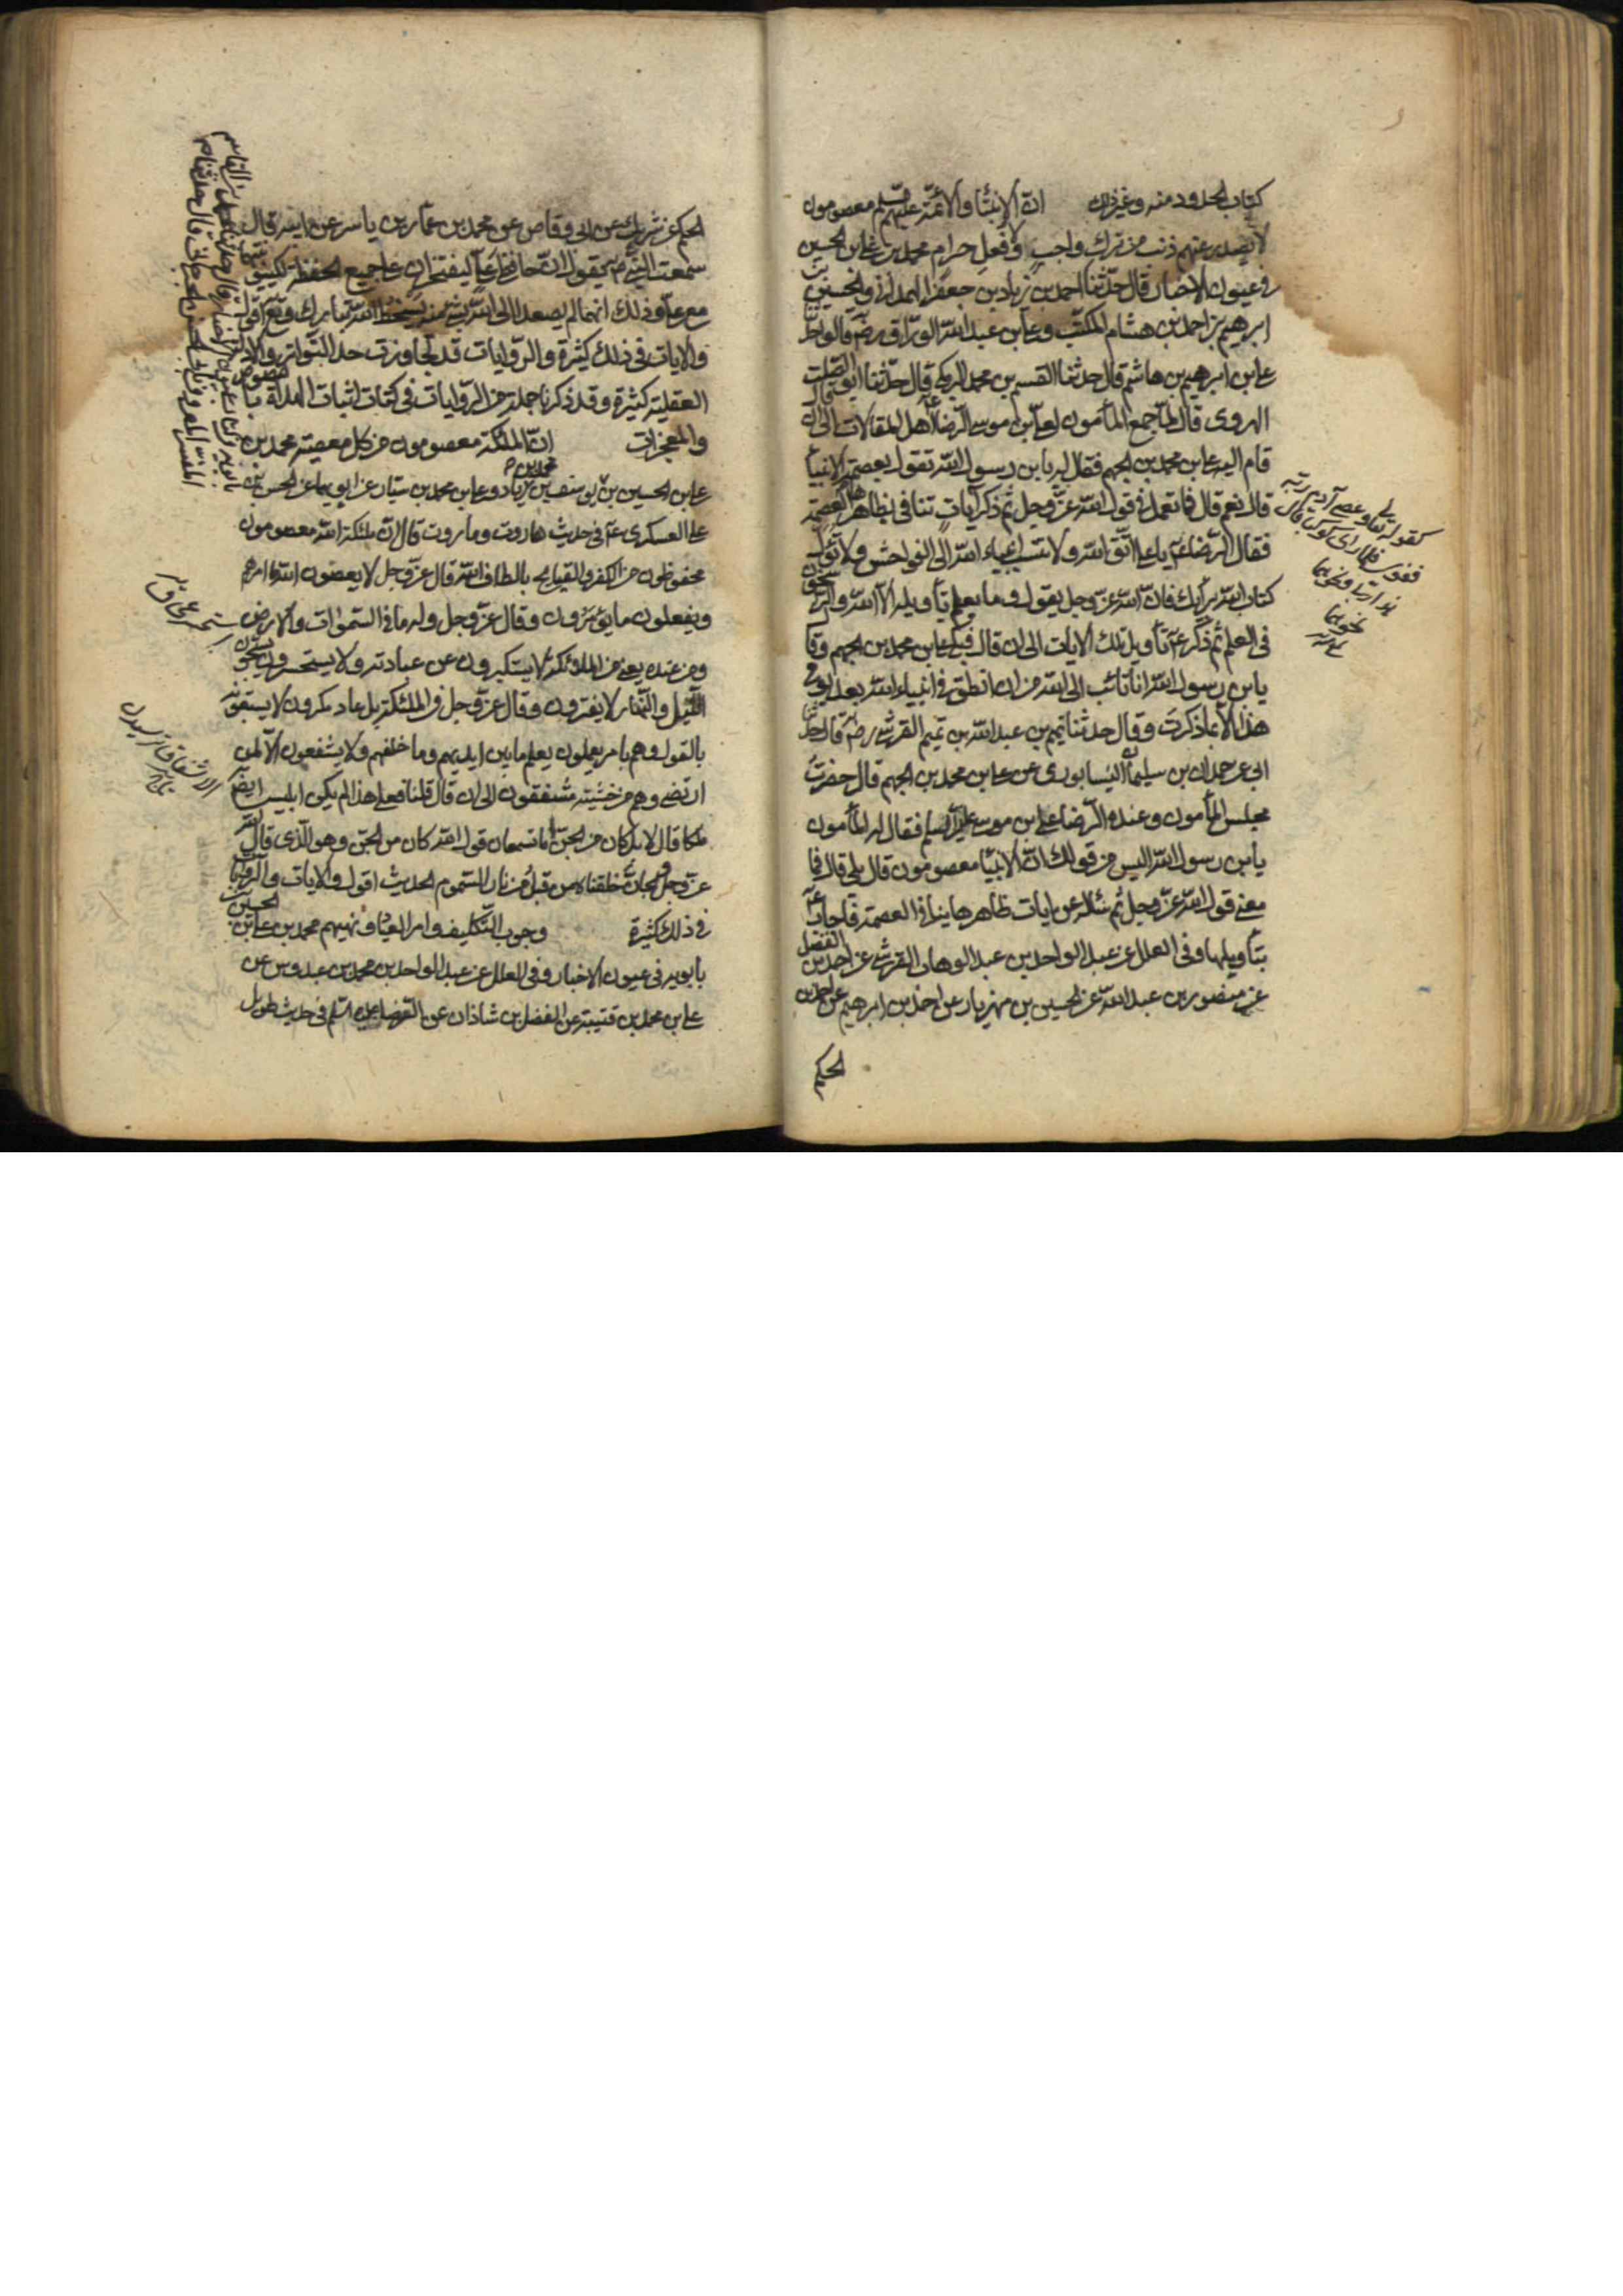 كتاب الحدود منه وغير ذلك ان الانبيا والائمة عليهم السلم معصومون
لا يصدر عنهم ذنب من ترك واجب ولا فعل حرام محمد بن علي بن الحسين
في عيون الاخبار قال حدثنا احمد بن زياد بن جعفر الهمداني والحسين بن
ابرهيم بن احمد بن هشام المكتب وعلي بن عبد الله الوراق رضه قالوا حدثنا
علي بن ابرهيم بن هاشم قال حدثنا القسم بن محمد البرمكي قال حدثنا ابو الصلت
الهروي قال لما جمع المأمون لعلي بن موسى الرضا ع اهل المقالات الى ان قال
قام اليه علي بن محمد بن الجهم فقال له يابن رسول الله تقول بعصمة الانبيا
قال نعم قال فما تعمل في قول الله عز وجل ثم ذكر آيات تنافي بظاهرها العصمة
فقال الرضا ع يا علي اتق الله ولا تنسب انبياء الله الى الفواحش ولا تتأول
كتاب الله برأيك فان الله عز وجل يقول وما يعلم تأويله الا الله والراسخون
في العلم ثم ذكر ع تأويل تلك الايات الى ان قال فبكى علي بن محمد بن الجهم وقال
يابن رسول الله انا تائب الى الله من ان انطق في انبياء الله بعد يومي
هذا الا بما ذكرت وقال حدثنا تميم بن عبد الله بن تميم القرشي رضه قال حدثني
ابي عن حمدان بن سليمان النيسابوري عن علي بن محمد بن الجهم قال حضرت
مجلس المأمون وعنده الرضا علي بن موسى عليه السلم فقال له المأمون
يابن رسول الله اليس من قولك ان الانبيا معصومون قال بلى قال فما
معنى قول الله عز وجل ثم سئله عن ايات ظاهرها ينافي العصمة فاجاب ع
بتأويلها وفي العلل عن عبد الواحد بن عبد الوهاب القرشي عن احمد بن الفضل
عن منصور بن عبد الله عن الحسين بن مهزيار عن احمد بن ابرهيم عن احمد بن
الحكم
كقوله تعالى وعصى آدم ربه
الحكم عن شريك عن ابي وقاص عن محمد بن عمار بن ياسر عن ابيه قال
سمعت النبي ص يقول ان حافظي علي ليفتخران على جميع الحفظة بكينونتهما
مع علي وذلك انهما لم يصعدا الى الله بشئ منه يسخط الله تبارك وتعالى اقول
والايات في ذلك كثيرة والروايات قد تجاوزت حد التواتر والادلة
العقلية كثيرة وقد ذكرنا جملة من الروايات في كتاب اثبات الهداة بالنصوص
والمعجزات ان الملئكة معصومون من كل معصية محمد بن
علي بن الحسين عن يوسف بن محمد بن زياد وعلي بن محمد بن سيار عن ابويهما عن الحسن بن
علي العسكري ع في حديث هاروت وماروت قال ان ملئكة الله معصومون
محفوظون من الكفر والقبايح بالطاف الله قال عز وجل لا يعصون الله ما امرهم
ويفعلون ما يؤمرون وقال عز وجل وله ما في السموات والارض
ومن عنده يعني من الملائكة لا يستكبرون عن عبادته ولا يستحسرون يسبحون
الليل والنهار لا يفترون وقال عز وجل في الملئكة بل عباد مكرمون لا يسبقونه
بالقول وهم بامره يعملون يعلم ما بين ايديهم وما خلفهم ولا يشفعون الا لمن
ارتضى وهم من خشيته مشفقون الى ان قال قلنا فعلى هذا لم يكن ابليس ايضا
ملكا قال لا بل كان من الجن اما تسمعان قول الله كان من الجن وهو الذي قال الله
عز وجل والجان خلقناه من قبل من نار السموم الحديث اقول والايات والروايات
في ذلك كثيرة وجوب التكليف وامر العباد ونهيهم محمد بن علي بن الحسين بن
بابويه في عيون الاخبار وفي العلل عن عبد الواحد بن محمد بن عبدوس عن
علي بن محمد بن قتيبة عن الفضل بن شاذان عن الرضا عليه السلم في حديث طويل